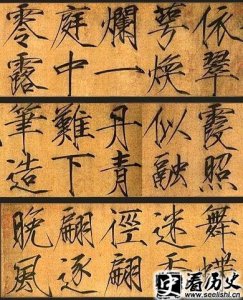 依翠
萼煥
爛一
庭中
零露
霞照
似融
丹青
難下
筆造
舞蝶
迷香
徑翩
翩逐
晚風
看历史